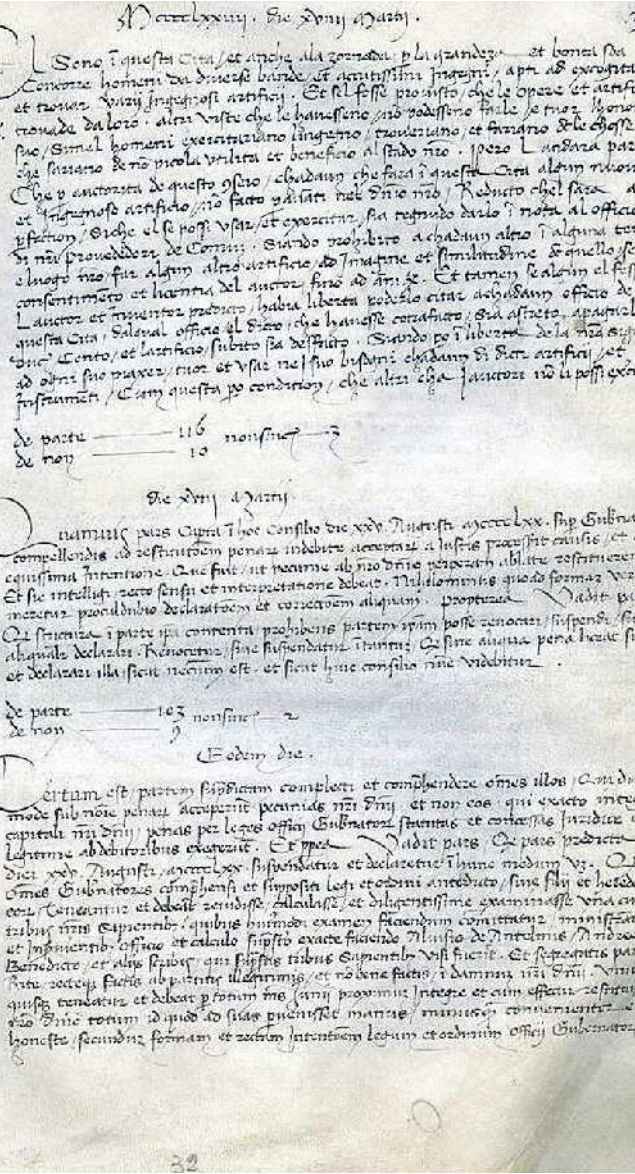 Mcccclxxiiii. die xviiii Martii.
L Sono ĩ questa Cita, et anche ala zornada, ꝑ la grandeza et bonta soa
Concorre homeni da diverse bande, et acutissimi Ingegni, apti ad excogita
et trovar varij Ingegnosi artificij. Et sel fosse provisto, che le opere et artifi
trovade da loro, altri viste che le havesseno, nõ podesseno farle, e tuor lhono
suo, simel homeni exercitariano lingegno, troveriano, et fariano de le chosse
che sariano de nõ picola utilita et beneficio al stado nr̃o. Pero L andara par
Che ꝑ auctorita de questo ꝯseio, chadaun che fara ĩ questa Cita algun nuovo
et Ingegnoso artificio, nõ facto ꝑavãti nel dñio nr̃o, Reducto chel sara a
ꝑfection, siche el se possi usar, et exercitar, sia tegnudo darlo ĩ nota al officio
di nr̃i provededori de Comun. Siando prohibito a chadaun altro ĩ alguna ter
e luogo nr̃o, far algun altro artificio, ad Imagine et similitudine de quello, se
consentimẽto et licentia del auctor, fino ad ani x. Et tamen se algun el fes
L auctor et inventor predicto, habia liberta poderlo citar a chadaun officio de
questa Cita, dal qual officio el dicto, che havesse cõtrafacto, sia astreto, a pagarli
duc̃ Cento, et lartificio, subito sia desfacto. Siando pò ĩ liberta de la nr̃a Sig
ad ogni suo piaxer, tuor et usar nei suo bisogni chadaun di dicti artificij, et
Instrumẽti, Cum questa pò condition, che altri cħa i auctori nõ li possi exer
de parte 116 nonsinc̃ 3
de non 10
die xviiij Martij.
Quamvis pars Capta ĩ hoc Consilio die xxv Augusti Mcccclxx. suꝑ Gubnato
compellendis ad restitutõem penar̃ indebite acceptar̃ a Iustis processit causis, et
equissima Intentione. Que fuit, ut pecunie ab nr̃o dñio perperam ablate restituerent
Et sic intelligi recto sensu et interpretatione debeat. Nihilominus quoad formam ver
meretur proculdubio declaratõem et correctõem aliquam. propterea Vadit pa
Q strictura ĩ parte ip̃a contenta, prohibens partem ip̃am posse revocari, suspendi, sive
aliqualr̃ declarari. Revocetur, sive suspendatur ĩtantum, Q sine aliqua pena liceat
et declarari illa, sicut necium est, et sicut huic consilio nũc videbitur.
de parte 103 nonsinc̃ 2
de non 9
Eodem die.
Certum est, partem sup̃dictam complecti et comp̃hendere om̃es illos, Qui
mode sub nõie penar̃ acceperũt pecunias nr̃i dñij, et non eos, qui exacto inte
capitali nr̃i dñij, penas per leges officij Gubnator̃ statutas et concessas Iuridice
legitime ab debitoribus exegerũt. Et p̃pea Vadit pars, Q pars predicta
diei xxv. Augusti, Mcccclxx suspendatur et declaretur ĩ hunc modum vz. Q
om̃es Gubnatores comp̃hensi et suppositi legi et ordini antedicto, sive filij et hered
eor̃, teneantur et debeãt revidisse, calculasse, et diligentissime examinasse una cum
tribus nr̃is Sapientib, quibus huiuõi examen faciendum cõmittatur, ministra
et Invenientib officio et calculo sup̃sto exacte faciendo, Aluisio de Antelmis, Andrea
Benedicto, et alijs scribis, qui sup̃stis tribus Sapientib visi fuerit. Et segregatis par
rite, recteq, factis ab partitis illegitimis, et nõ bene factis, ĩ damnum nr̃i dñij. Unus
quisq teneatur et debeat ꝑ totum mẽs Iunij proximum Integre et cum effectu restitui
nr̃o dñio totum id quod ad suas ꝑvenisset manus, minusq convenienter e
honeste, secundum formam et rectam Intentõem legum et ordinum officij Gubernator
32